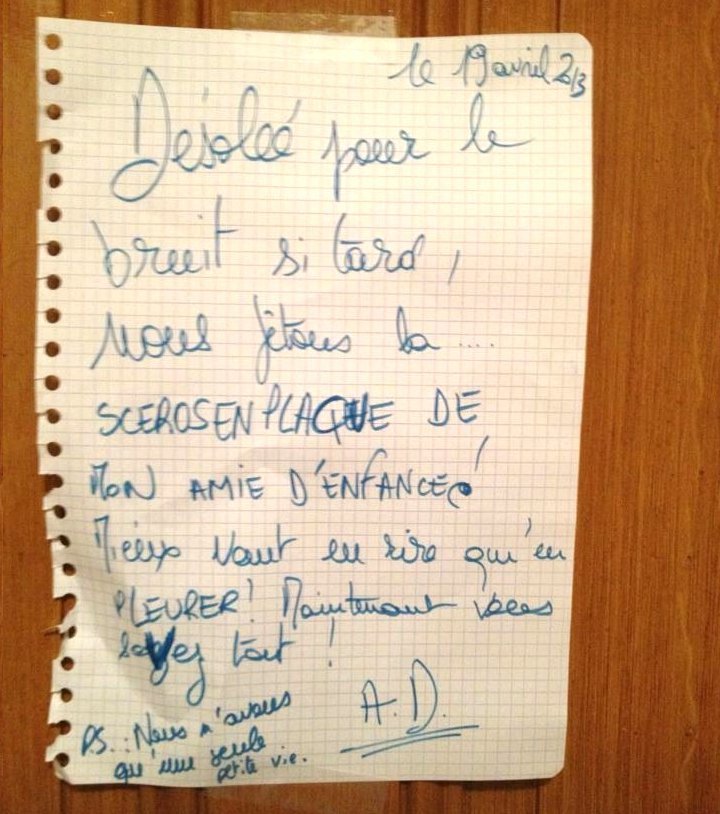 le 19 avril 2013
Desolée pour le
bruit si tard,
nous fêtons la ....
SCEROSENPLAQUE DE
MON AMIE D'ENFANCE!
Mieux vaut en rire qu'en
PLEURER! Maintenant vous
savez tout !
A.D.
PS.: Nous n'avons
qu'une seule
petite vie.